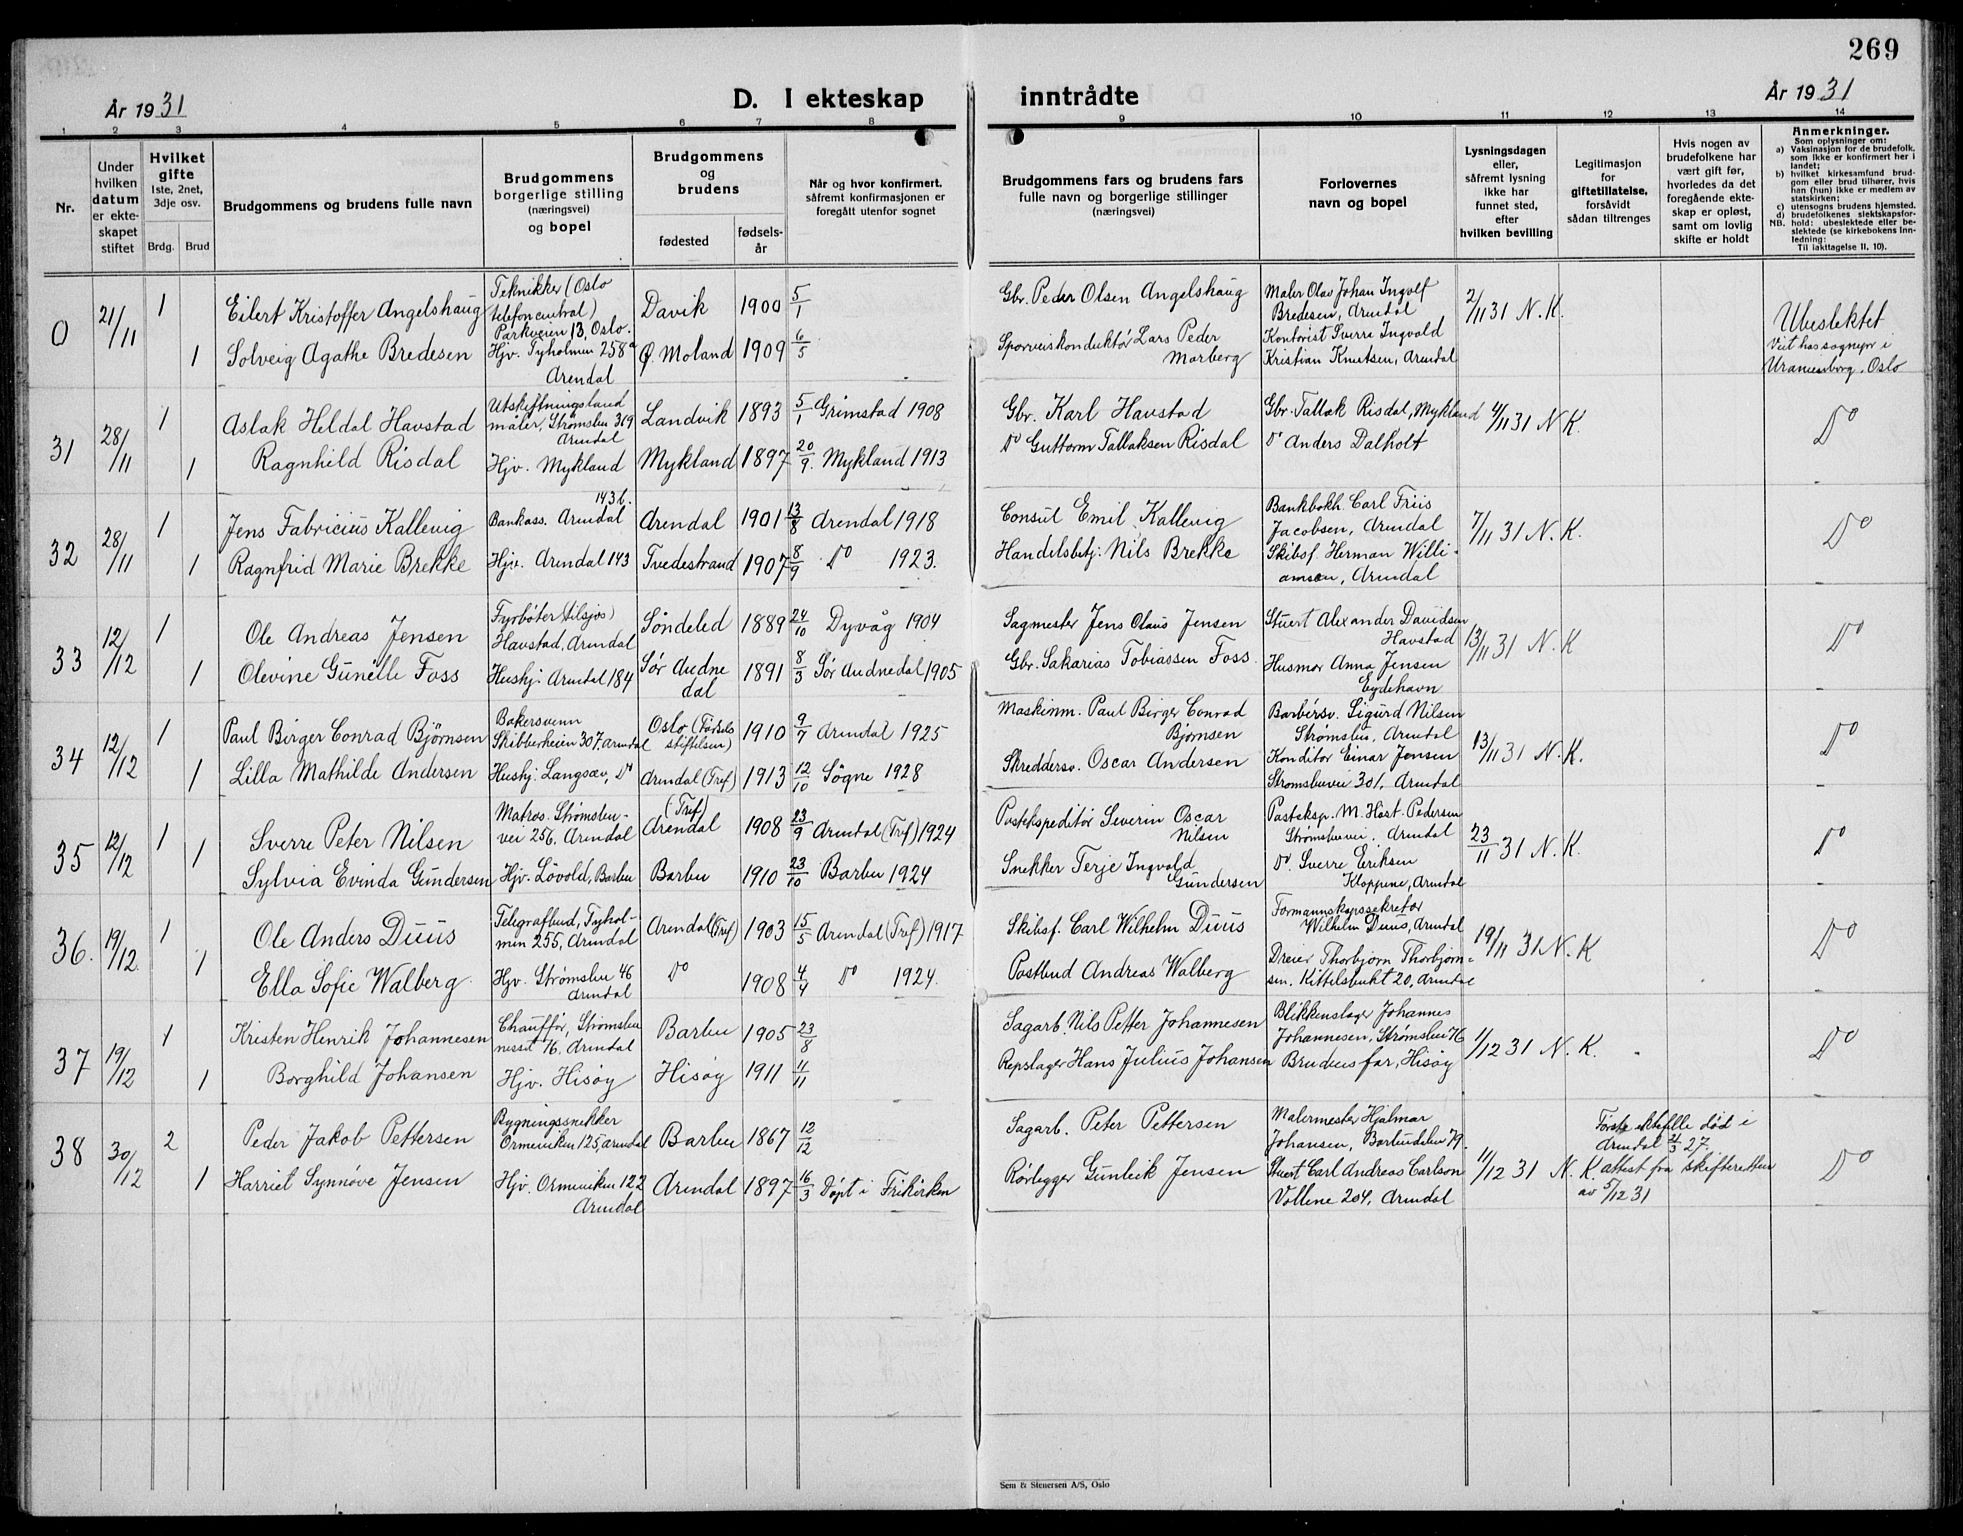 269
År 1931
D. I ekteskap inntrådte
År 1931
1 2 3 4 5 6 7 8 9 10 11 12 13 14
Nr.
Under hvilken datum er ekteskapet stiftet
Hvilket gifte
1ste, 2net, 3dje osv.
Brdg. Brud
Brudgommens og brudens fulle navn
Brudgommens borgerlige stilling (næringsvei) og bopel
Brudgommens og brudens
fødested
fødselsår
Når og hvor konfirmert, såfremt konfirmasjonen er foregått utenfor sognet
Brudgommens fars og brudens fars fulle navn og borgerlige stillinger (næringsvei)
Forlovernes navn og bopel
Lysningsdagen eller, såfremt lysning ikke har funnet sted, efter hvilken bevilling
Legitimasjon for giftetillatelse, forsåvidt sådan tiltrenges
Hvis nogen av brudefolkene har vært gift før, hvorledes da det foregående ekteskap er opløst, samt om lovlig skifte er holdt
Anmerkninger.
Som oplysninger om:
a) Vaksinasjon for de brudefolk, som ikke er konfirmert her i landet;
b) hvilket kirkesamfund brudgom eller brud tilhører, hvis han (hun) ikke er medlem av statskirken;
c) utensogns brudens hjemsted.
d) brudefolkenes slektskapsforhold: ubeslektede eller beslektede (se kirkebokens innledning:
NB. Til iakttagelse II, 10).
0 21/11 1 Eilert Kristoffer Angelshaug Teknikker (Oslo telefoncentral) Parkveien 13, Oslo. Davik 1900 5/1 Gbr. Peder Olsen Angelshaug Maler Olav Johan Ingolf Bredesen, Arendal 2/11 31 N.K. Ubeslektet
1 Solveig Agathe Bredesen Hjv. Tyholmen 258a Arendal Ø. Moland 1909 6/5 Sporveiskonduktør Lars Peder Marberg Kontorist Sverre Ingvald Kristian Knutsen, Arendal Viet hos sognepr i Uranienborg, Oslo
31 28/11 1 Aslak Heldal Havstad Utskiftningsland måler, Strømsbu 319 Arendal Landvik 1893 5/1 Grimstad 1908 Gbr. Karl Havstad Gbr. Tallak Risdal, Mykland 4/11 31 N.K. Do
1 Ragnhild Risdal Hjv. Mykland Mykland 1897 20/9 Mykland 1913 Do Guttorm Tallaksen Risdal Do Anders Dalholt
32 28/11 1 Jens Fabricius Kallevig Bankass. Arendal 143 b. Arendal 1901 13/8 Arendal 1918 Consul Emil Kallevig Bankbokh. Carl Friis Jacobsen, Arendal 7/11 31 N.K. Do
1 Ragnfrid Marie Brekke Hjv. Arendal 143 Tvedestrand 1907 8/9 Do 1923. Handelsbetj. Nils Brekke Skibsf. Herman Williamsen, Arendal
33 12/12 1 Ole Andreas Jensen Fyrbøter (tilsjøs) Havstad, Arendal Søndeled 1889 24/10 Dyvåg 1904 Sagmester Jens Olaus Jensen Stuert Alexander Davidsen Havstad 13/11 31 N.K Do
1 Olevine Gunelle Foss Hushj. Arendal 184 Sør Audnedal 1891 8/3 Sør Audnedal 1905 Gbr. Sakarias Tobiassen Foss Husmor Anna Jensen Eydehavn
34 12/12 1 Paul Birger Conrad Bjørnsen Bakersvenn Skibberheien 307, Arendal Oslo (Fødselsstiftelsen) 1910 9/7 Arendal 1925 Maskinm. Paul Birger Conrad Bjørnsen Barbersv. Sigurd Nilsen Strømsbu, Arendal 13/11 31 N.K. Do
1 Lilla Mathilde Andersen Hushj. Langsæv, Do Arendal (Tref) 1913 12/10 Søgne 1928 Skreddersv. Oscar Andersen Konditor Einar Jensen Strømsbuvei 301, Arendal
35 12/12 1 Sverre Peter Nilsen Matros. Strømsbuvei 256, Arendal (Tref) Arendal 1908 23/9 Arendal (Tref) 1924 Postekspeditør Severin Oscar Nilsen Posteksp. M. Hart-Pedersen Strømsbuvei, Arendal 23/11 31 N.K. Do
1 Sylvia Evinda Gundersen Hjv. Løvold, Barbu Barbu 1910 23/10 Barbu 1924 Snekker Terje Ingvald Gundersen Do Sverre Eriksen Kloppene, Arendal
36. 19/12. 1 Ole Anders Duus Telegrafbud, Tyholmen 255, Arendal Arendal (Tref) 1903 15/5 Arendal (Tref) 1917 Skibsf. Carl Wilhelm Duus Formannskapssekretær Wilhelm Duus, Arendal 19/11 31 N.K Do
1 Ella Sofie Walberg. Hjv. Strømsbu 46 Arendal Do 1908 4/4 Do 1924. Postbud Andreas Walberg Dreier Thorbjørn Thorbjørnsen, Kittelsbukt 20, Arendal
37 19/12 1 Kristen Henrik Johannesen Chauffør, Strømsbunesset 76, Arendal Barbu 1905 23/8 Sagarb. Nils Petter Johannesen Blikkenslager Johannes Johannesen, Strømsbu 76 1/12 31 N.K. Do
1 Borghild Johansen Hjv. Hisøy Hisøy 1911 4/11 Repslager Hans Julius Johansen Brudens far, Hisøy
38 30/12 2 Peder Jakob Pettersen Bygningssnekker Ormeviken 125, Arendal Barbu 1867 12/12 Sagarb. Peter Pettersen Malermester Hjalmar Johansen, Barbudalen 79. 11/12 31 N.K. Første ektefelle død i Arendal 21/3 27. attest fra skifteretten av 5/12 31 Do
1 Harriet Synnøve Jensen Hjv. Ormeviken 122 Arendal Arendal 1897 16/3 Døpt i Frikirken Rørlegger Gunleik Jensen Stuert Carl Andreas Carlson Vollene 204, Arendal
Sem & Stenersen A/S, Oslo